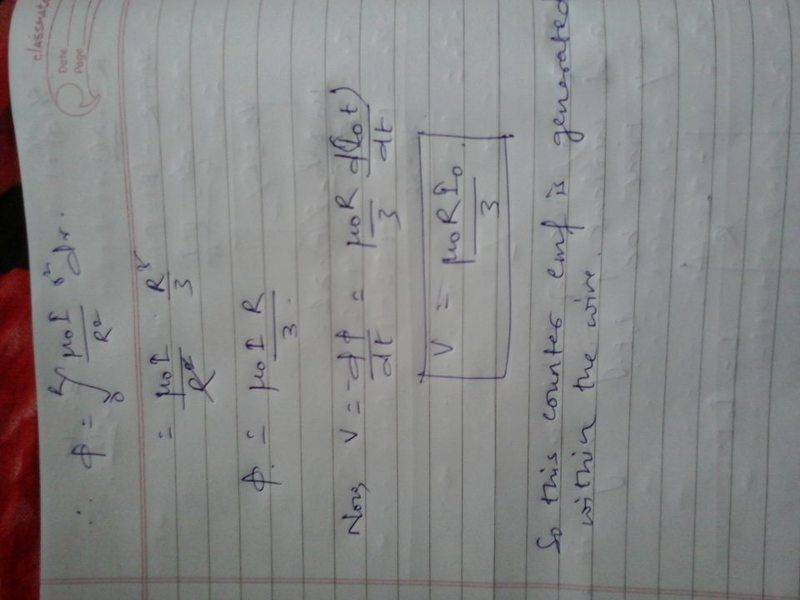 classmate
Date
Page
∴ φ = ∫₀ᴿ μ₀I/R² r² dr.
= μ₀I/R² . R³/3
φ = μ₀I R/3.
Now, V = -dφ/dt = μ₀R/3 d(I₀t)/dt
V = μ₀RI₀/3
So this counter emf is generated
within the wire.